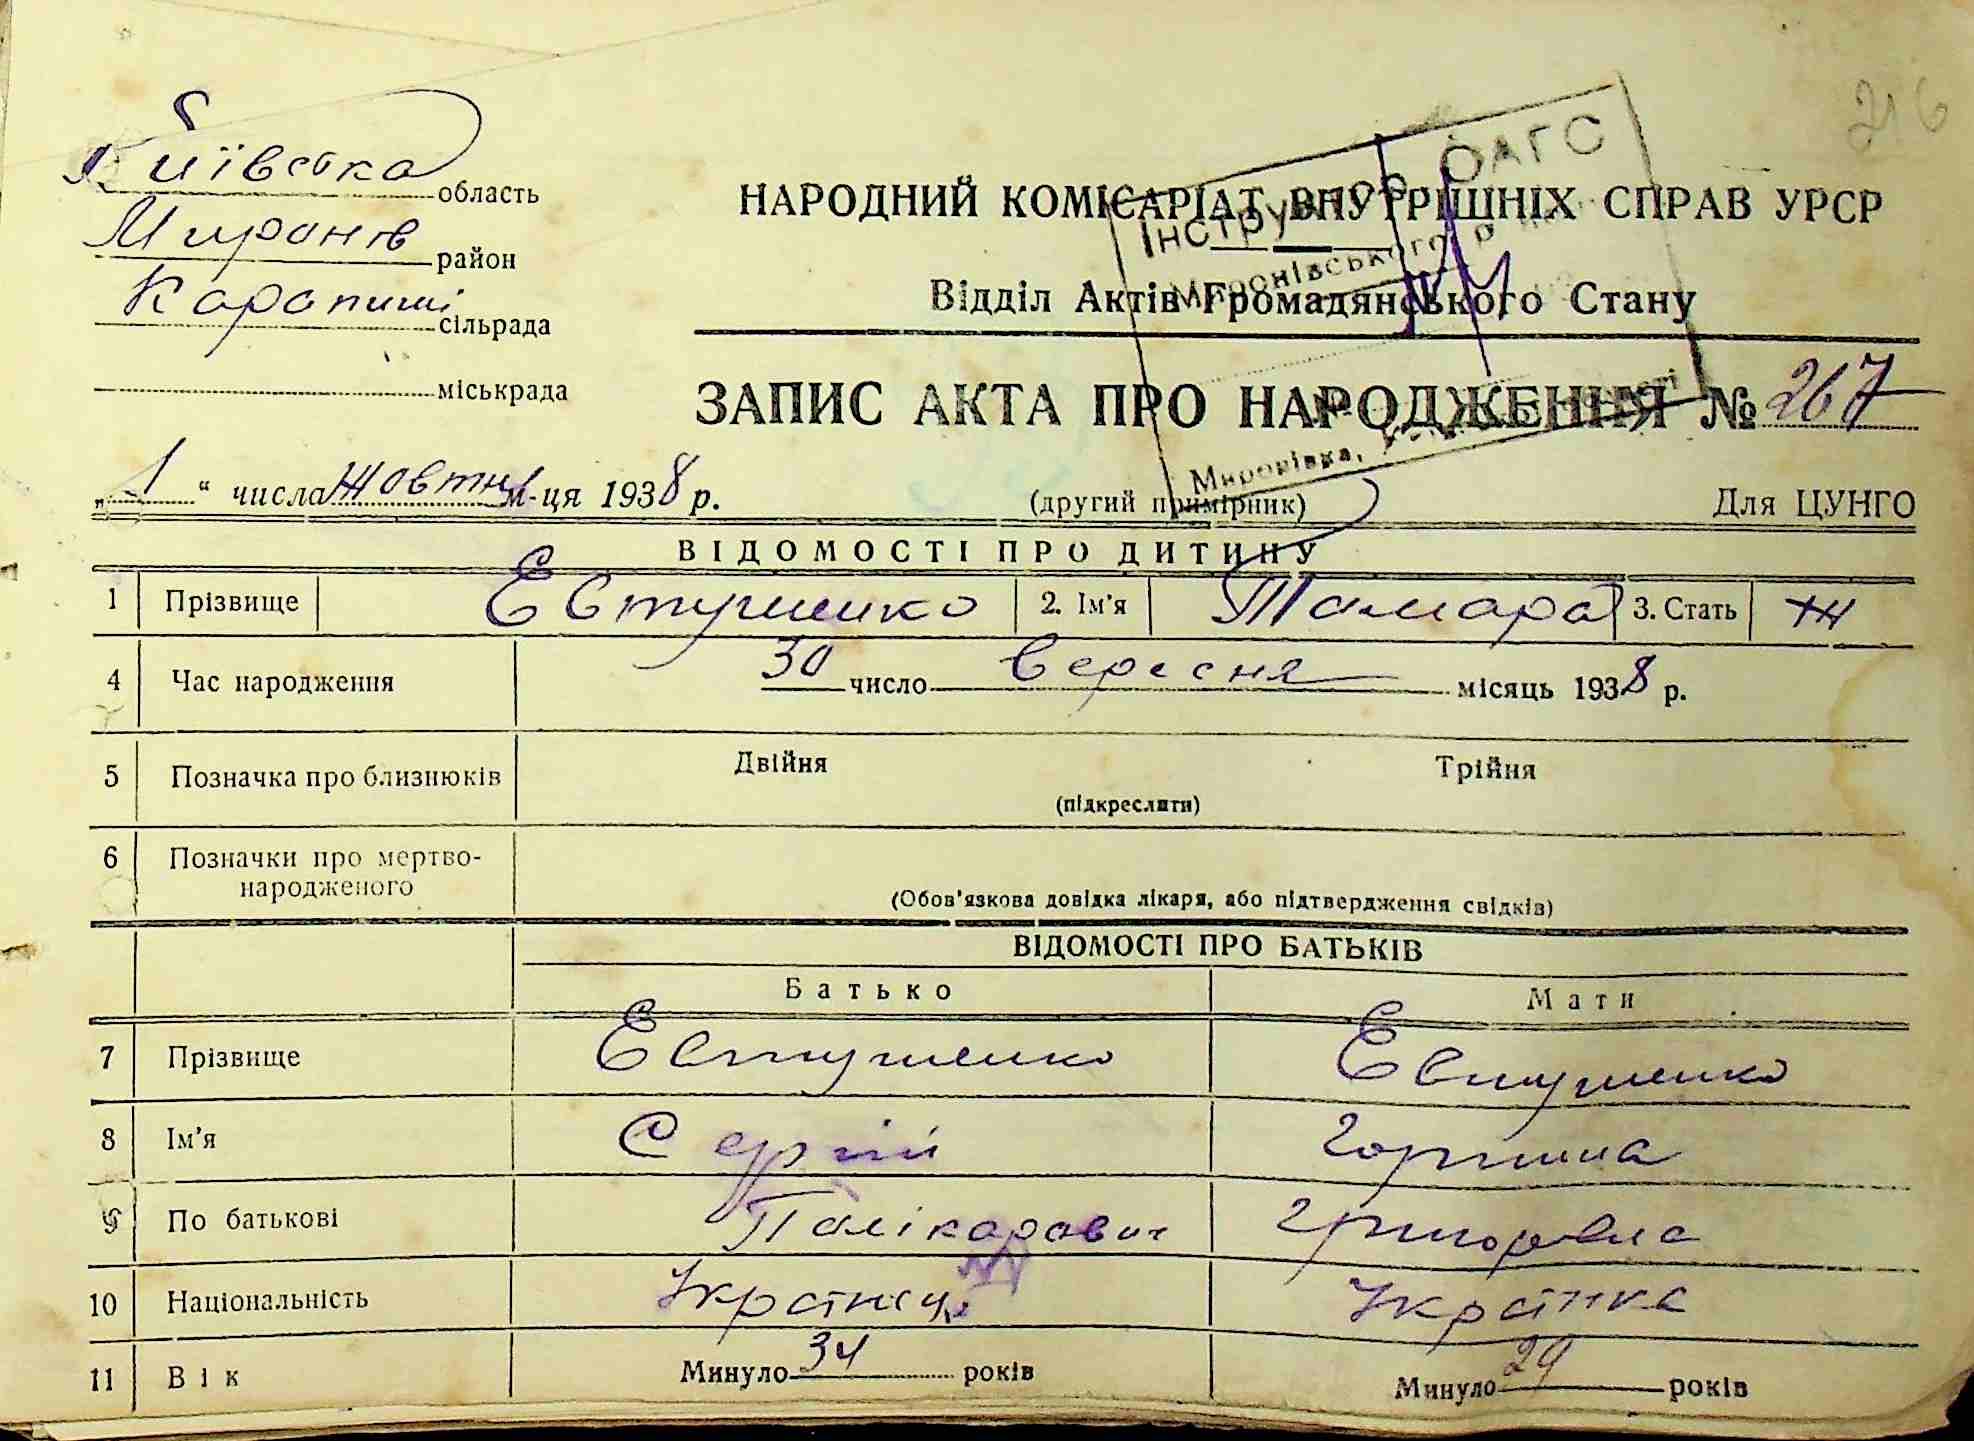 216
Київська область
Миронів район
Карапиші сільрада
міськрада
НАРОДНИЙ КОМІСАРІАТ ВНУТРІШНІХ СПРАВ УРСР
Відділ Актів Громадянського Стану
Інструктор ОАГС
Миронівського
Миронівка,
ЗАПИС АКТА ПРО НАРОДЖЕННЯ № 267
„1“ числа Жовтня м-ця 1938 р.
(другий примірник)
Для ЦУНГО
ВІДОМОСТІ ПРО ДИТИНУ
1 Прізвище Евтушенко 2. Ім'я Тамара 3. Стать Ж
4 Час народження 30 число вересня місяць 1938 р.
5 Позначка про близнюків Двійня Трійня
(підкреслити)
6 Позначки про мертво-
народженого
(Обов'язкова довідка лікаря, або підтвердження свідків)
ВІДОМОСТІ ПРО БАТЬКІВ
Батько Мати
7 Прізвище Евтушенко Евтушенко
8 Ім'я Сергій Горпина
9 По батькові Палікарович Григоровна
10 Національність Українец Українка
11 Вік Минуло 34 років Минуло 29 років